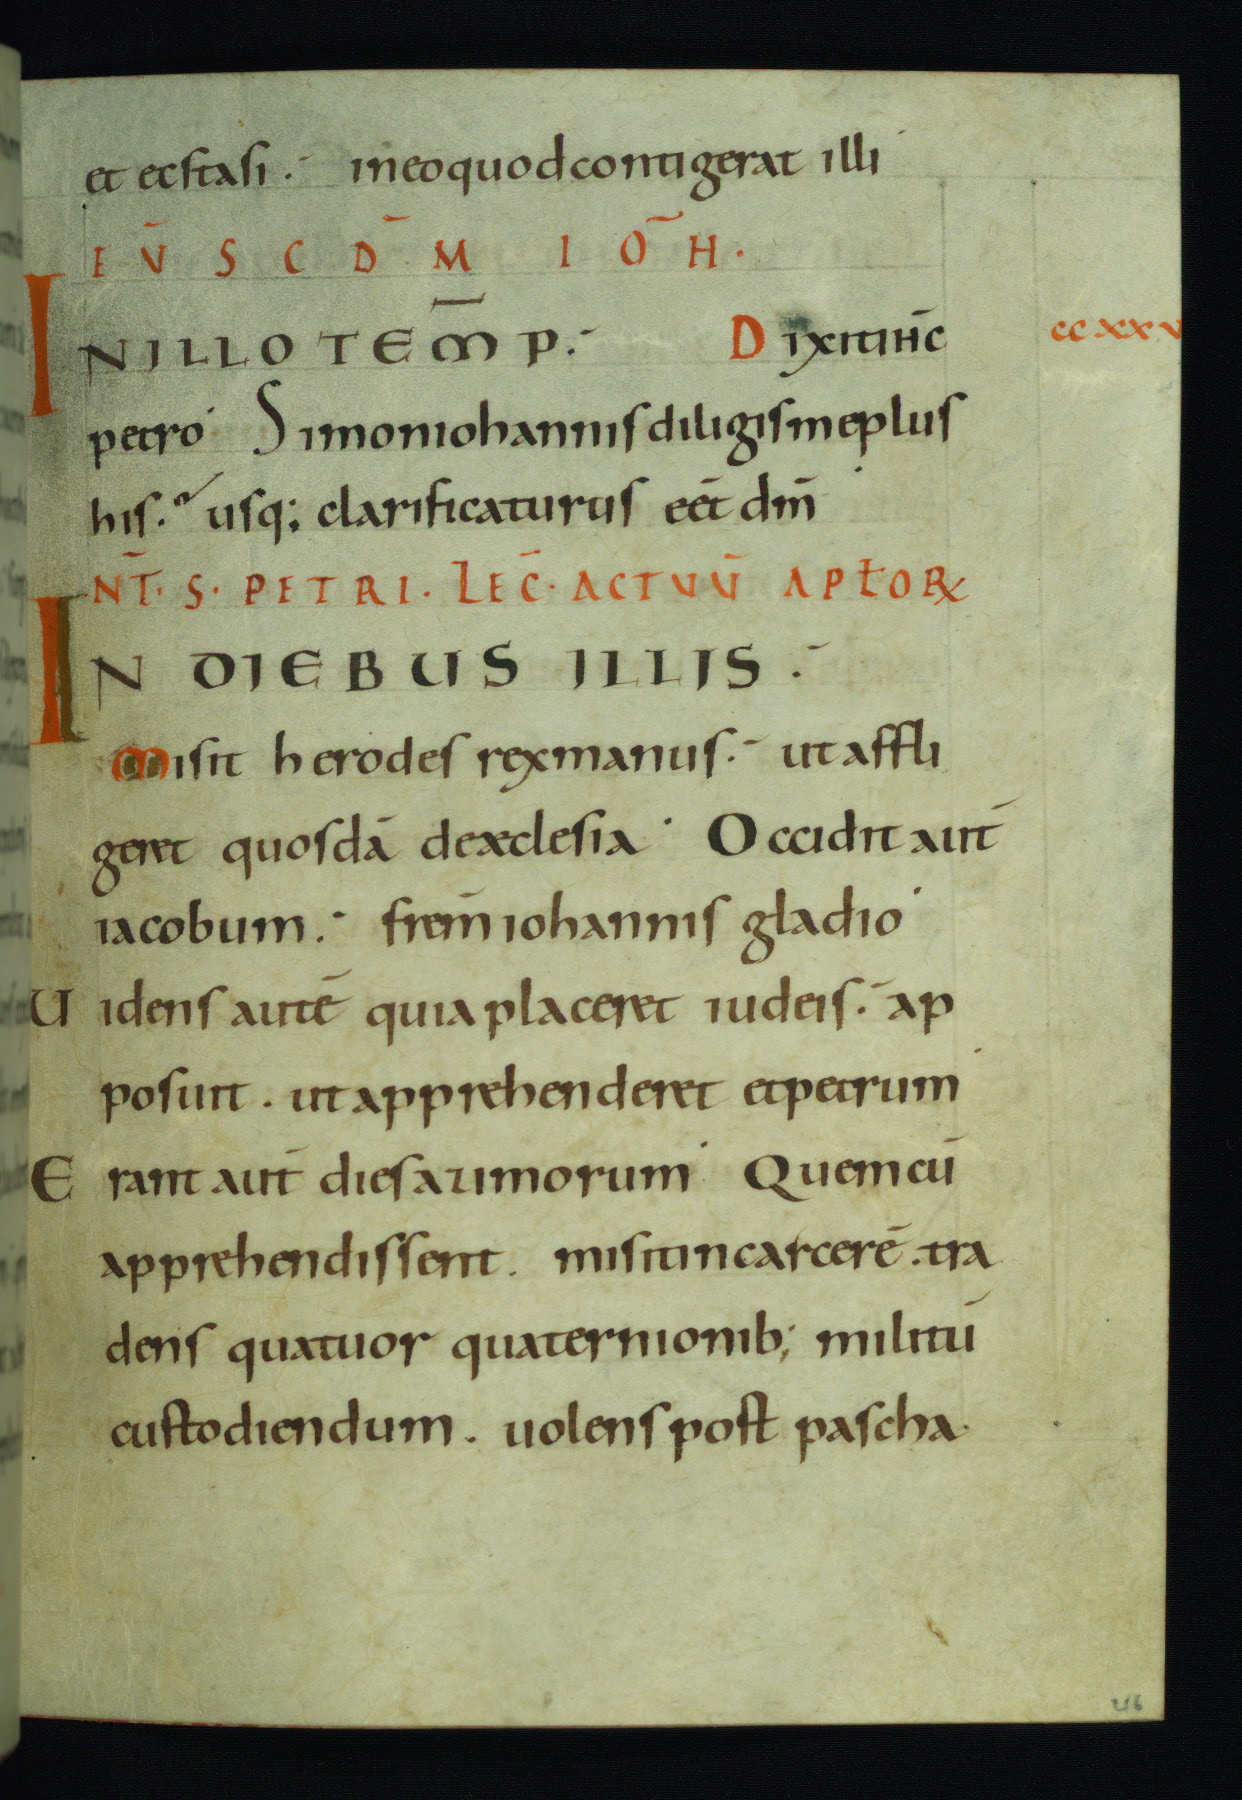 et ecstasi. in eo quod contigerat illi
EṼ SCD̄M IOH̄.
IN ILLO TEM̄P. Dixit ih̄c ccxxv
petro Simon iohannis diligis me plus
his. usq; clarificaturus eēt dm̄
IN̄T. S. PETRI. LEC̄. ACTUŪ APŁORꝝ
IN DIEBUS ILLIS.
misit herodes rex manus. ut affli
geret quosdā de æclesia Occidit aut̄
iacobum. frem̄ iohannis gladio
Uidens autē quia placeret iudeis. ap
posuit. ut apprehenderet et petrum
Erant aut̄ dies azimorum Quem cū
apprehendissent. misit in carcerē. tra
dens quatuor quaternionib; militū
custodiendum. uolens post pascha
216